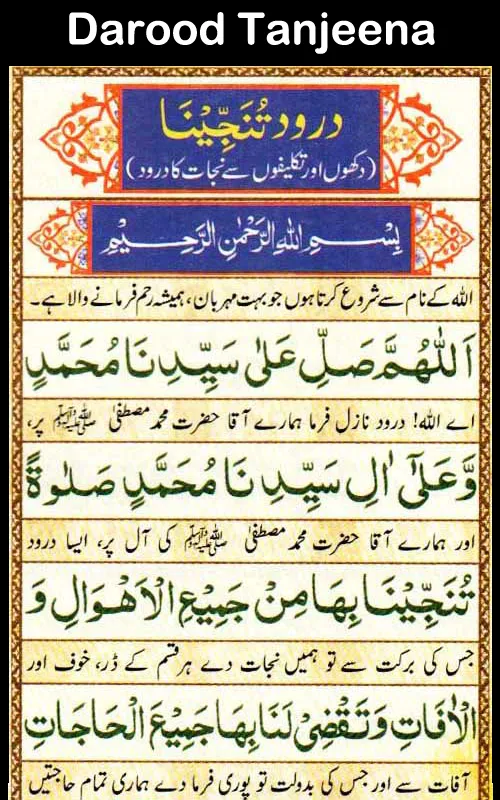 Darood Tanjeena
درود تُنَجِّيْنَا
(دکھوں اور تکلیفوں سے نجات کا درود)
بِسْمِ اللهِ الرَّحْمٰنِ الرَّحِيْمِ
اللہ کے نام سے شروع کرتا ہوں جو بہت مہربان، ہمیشہ رحم فرمانے والا ہے۔
اَللّٰهُمَّ صَلِّ عَلٰى سَيِّدِنَا مُحَمَّدٍ
اے اللہ! درود نازل فرما ہمارے آقا حضرت محمد مصطفیٰ ﷺ پر،
وَّعَلٰٓى اٰلِ سَيِّدِنَا مُحَمَّدٍ صَلٰوةً
اور ہمارے آقا حضرت محمد مصطفیٰ ﷺ کی آل پر، ایسا درود
تُنَجِّيْنَا بِهَا مِنْ جَمِيْعِ الْاَهْوَالِ وَ
جس کی برکت سے تو ہمیں نجات دے ہر قسم کے ڈر، خوف اور
الْاٰفَاتِ وَتَقْضِىْ لَنَا بِهَا جَمِيْعَ الْحَاجَاتِ
آفات سے اور جس کی بدولت تو پوری فرما دے ہماری تمام حاجتیں